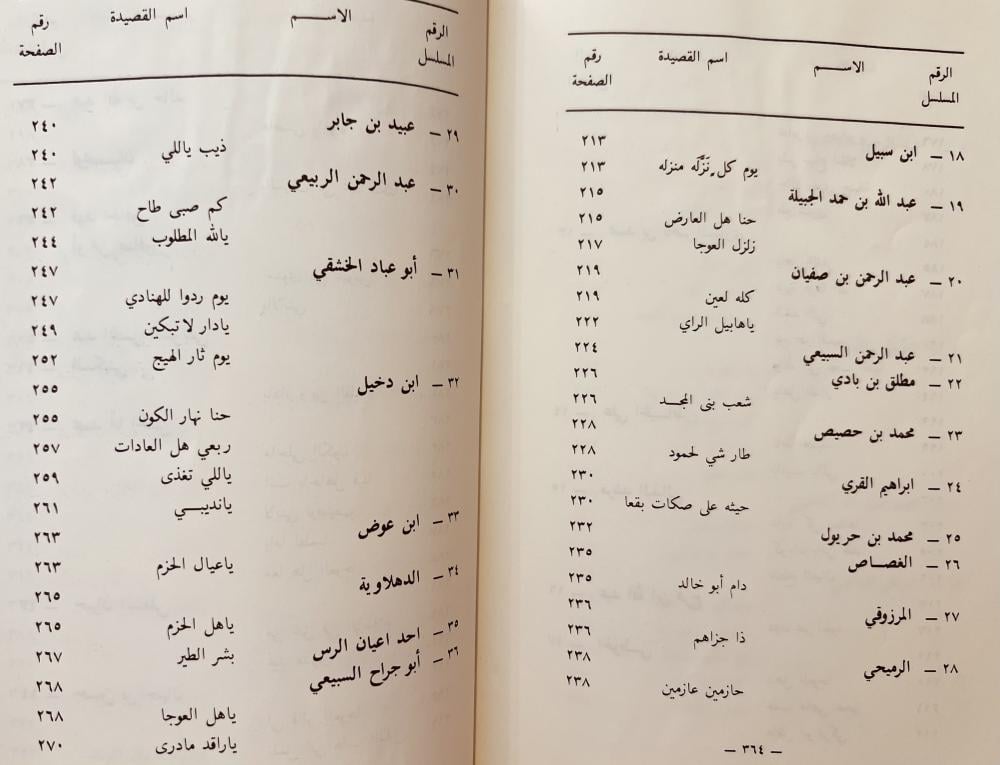 الرقم المسلسل الاســـم اسم القصيدة رقم الصفحة
١٨ — ابن سبيل ٢١٣
يوم كل نَزْلَه منزله ٢١٣
١٩ — عبد الله بن حمد الجبيلة ٢١٥
حنا هل العارض ٢١٥
زلزل العوجا ٢١٧
٢٠ — عبد الرحمن بن صفيان ٢١٩
كله لعين ٢١٩
ياهابيل الراي ٢٢٢
٢١ — عبد الرحمن السبيعي ٢٢٤
٢٢ — مطلق بن بادي ٢٢٦
شعب بنى المجـد ٢٢٦
٢٣ — محمد بن حصيص ٢٢٨
طار شي لحمود ٢٢٨
٢٤ — ابراهيم القري ٢٣٠
حيثه على صكات بقعا ٢٣٠
٢٥ — محمد بن حريول ٢٣٢
٢٦ — الغصـاص ٢٣٥
دام أبو خالد ٢٣٥
٢٧ — المرزوقي ٢٣٦
ذا جزاهم ٢٣٦
٢٨ — الرميحي ٢٣٨
حازمين عازمين ٢٣٨
— ٣٦٤ —
الرقم المسلسل الاســـم اسم القصيدة رقم الصفحة
٢٩ — عبيد بن جابر ٢٤٠
ذيب ياللي ٢٤٠
٣٠ — عبد الرحمن الربيعي ٢٤٢
كم صبى طاح ٢٤٢
يالله المطلوب ٢٤٤
٣١ — أبو عباد الخشقي ٢٤٧
يوم ردوا للهنادي ٢٤٧
يادار لا تبكين ٢٤٩
يوم ثار الهيج ٢٥٢
٣٢ — ابن دخيل ٢٥٥
حنا نهار الكون ٢٥٥
ربعي هل العادات ٢٥٧
ياللي تغذى ٢٥٩
يانديبـــي ٢٦١
٣٣ — ابن عوض ٢٦٣
ياعيال الحزم ٢٦٣
٣٤ — الدهلاوية ٢٦٥
ياهل الحزم ٢٦٥
٣٥ — احد اعيان الرس
بشر الطير ٢٦٧
٣٦ — أبو جراح السبيعي ٢٦٨
ياهل العوجا ٢٦٨
ياراقد مادرى ٢٧٠